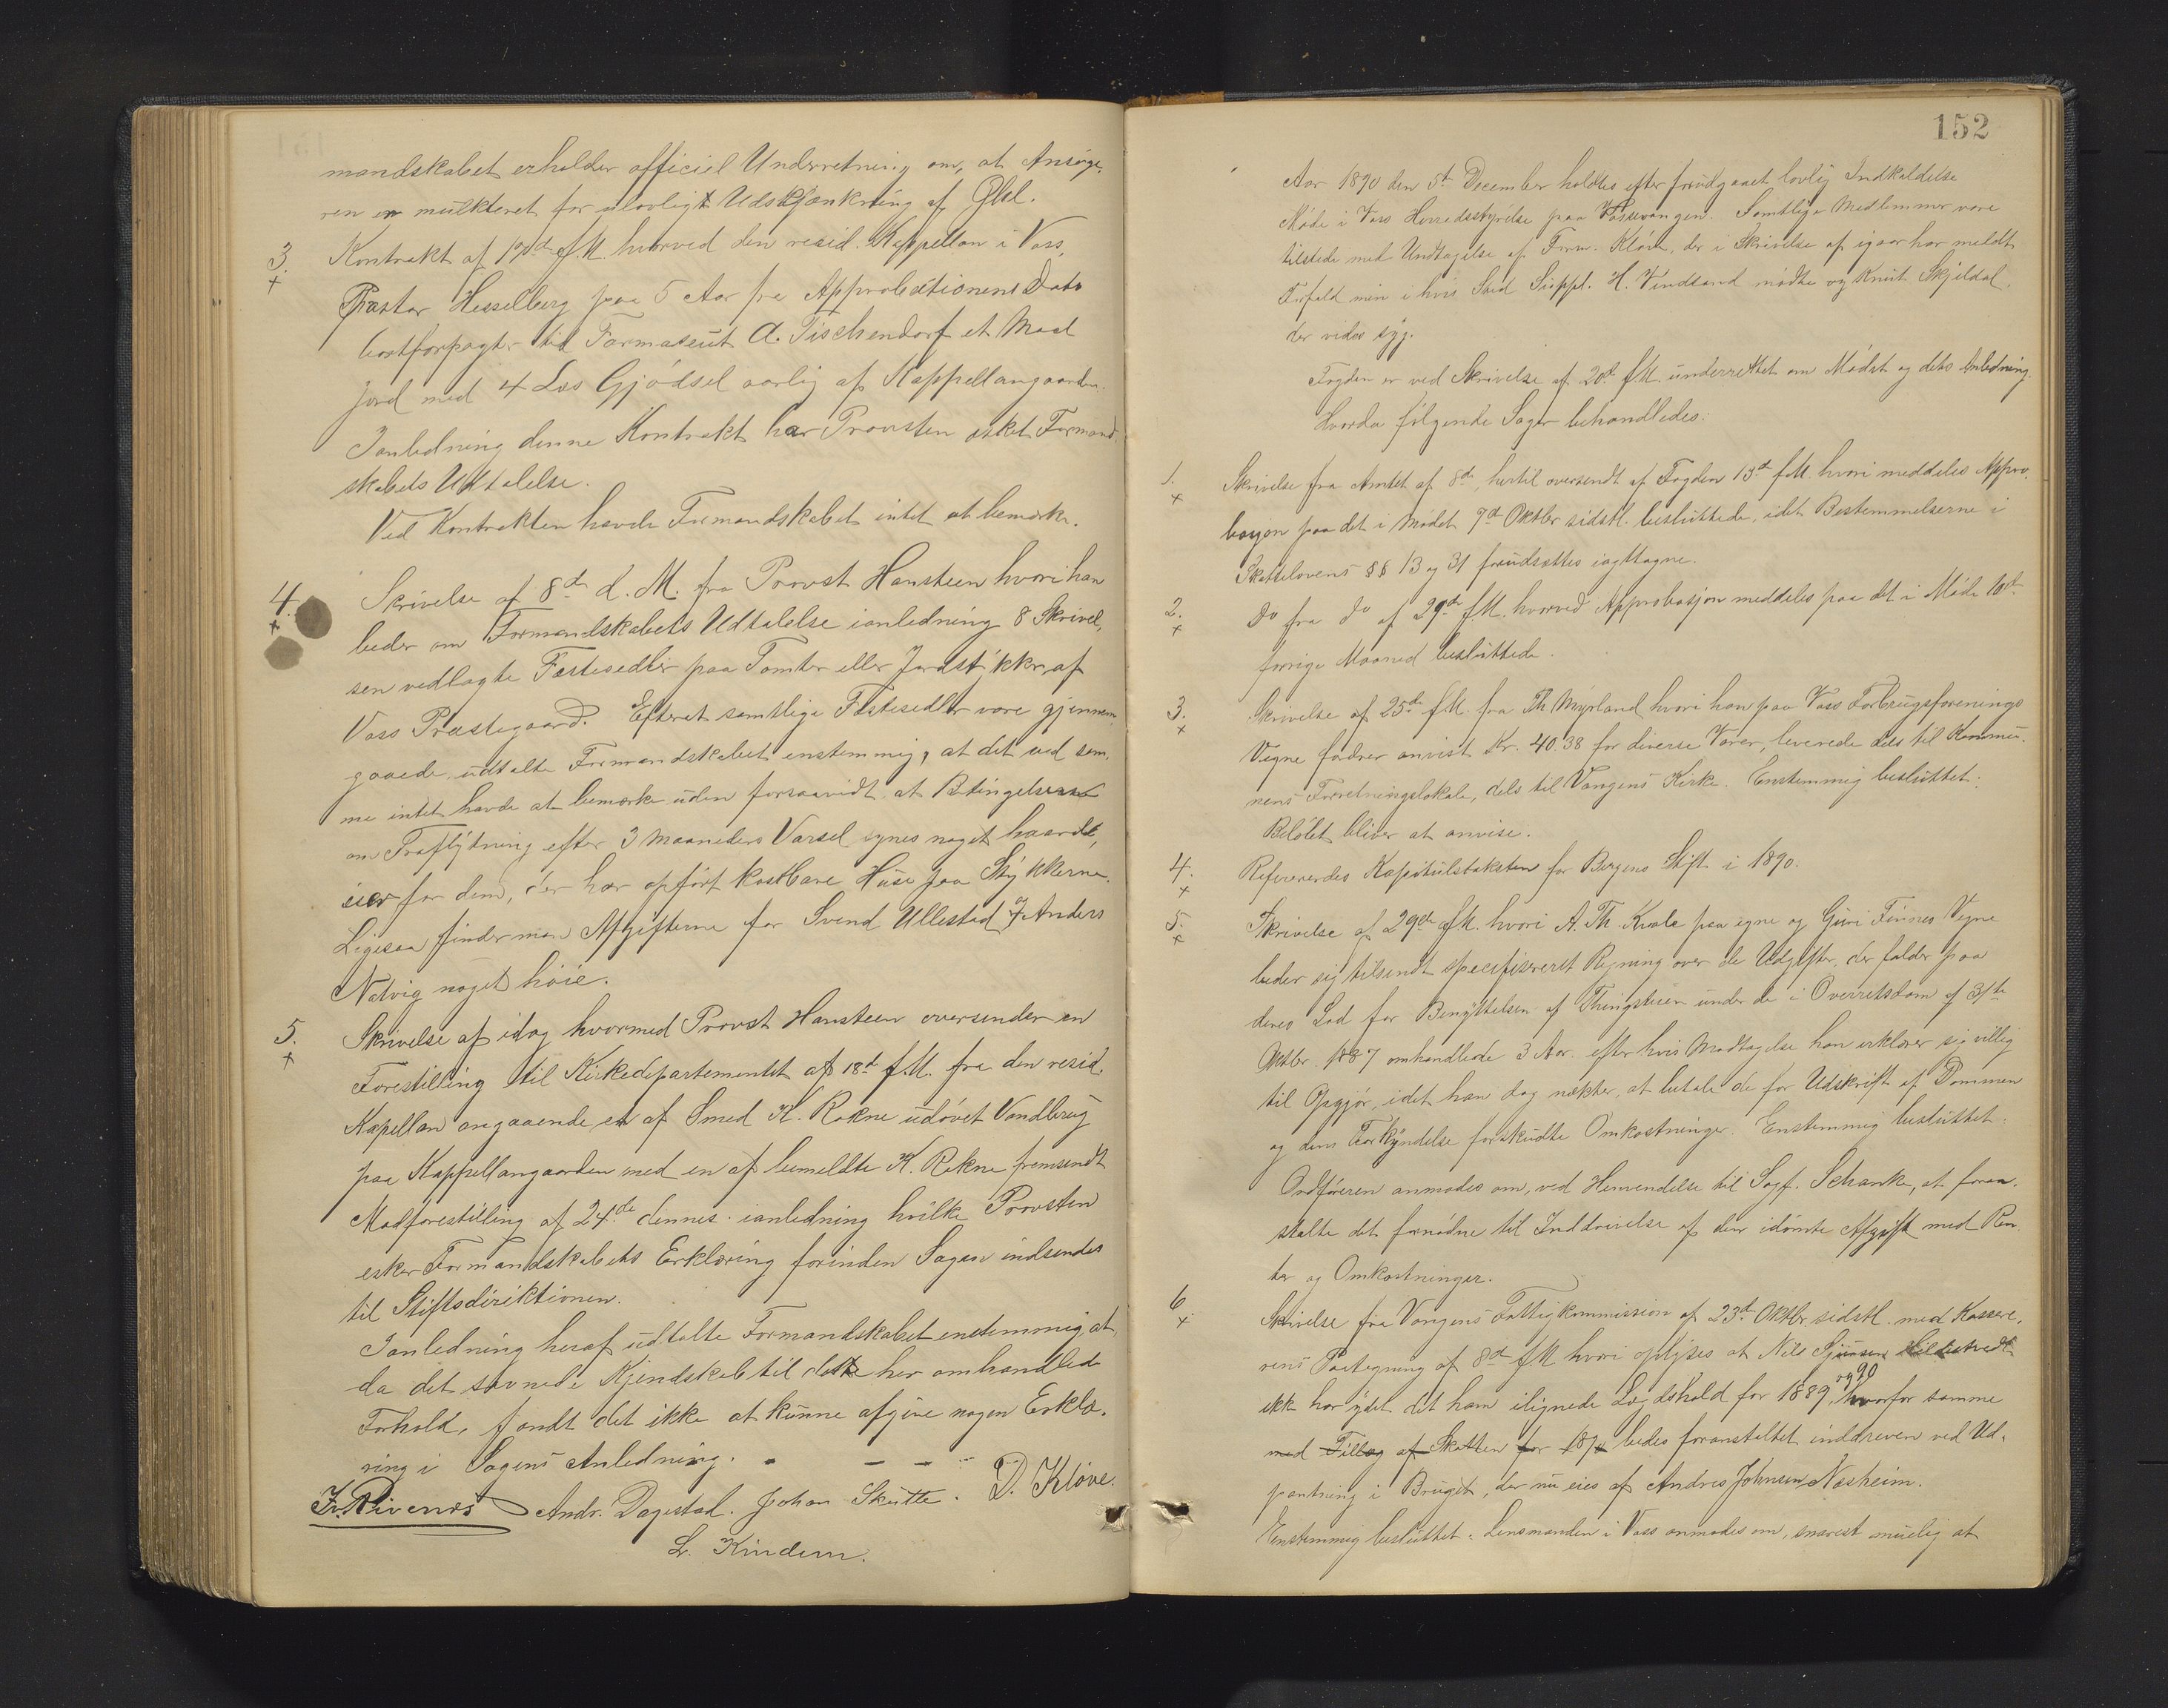 mandskabet erholder officiel Underretning om, at Ansøge-
ren er mulkteret for ulovligt Udskjænkning af Øl.
3. Kontrakt af 17de f.M. hvorved den resid. Kappellan i Voss,
Pastor Hesselberg paa 5 Aar fra Approbationens Dato
bortforpagter til Farmaseut A. Tischendorf et Maal
Jord med 4 Læs Gjødsel aarlig af Kappellangaarden.
Ianledning denne Kontrakt har Provsten æsket Formand-
skabets Udtalelse.
Ved Kontrakten havde Formandskabet intet at bemærke.
4. Skrivelse af 8de d. M. fra Provst Hansteen hvori han
beder om Formandskabets Udtalelse ianledning 8 Skrivel-
sen vedlagte Fæstesedler paa Tomter eller Jordstykker af
Voss Præstegaard. Efterat samtlige Fæstesedler vare gjennem-
gaaede, udtalte Formandskabet enstemmig, at det ved sam-
me intet havde at bemærke uden forsaavidt at Betingelserne
om Fraflytning efter 3 Maaneders Varsel synes noget haardt,
især for dem, der har opført kostbare Huse paa Stykkerne.
Ligesaa finder man Afgifterne for Svend Ullestad & Anders
Natvig noget høie.
5. Skrivelse af idag hvormed Provst Hansteen oversender en
Forestilling til Kirkedepartementet af 18de f.M. fra den resid.
Kapellan angaaende et af Smed K. Rokne udøvet Vandbrug
paa Kappellangaarden med en af bemeldte K. Rokne fremsendt
Modforestilling af 24de dennes ianledning hvilke Provsten
æsker Formandskabets Erklæring forinden Sagen indsendes
til Stiftsdirektionen.
Ianledning heraf udtalte Formandskabet enstemmig at,
da det savnede Kjendskab til dette her omhandlede
Forhold, fandt det ikke at kunne afgive nogen Erklæ-
ring i Sagens Anledning. - - - -
Iv. Rivenæs Andr. Dagestad. Johan Skutle. D. Kløve.
L. Kindem.
152
Aar 1890 den 5te December holdtes efter forudgaaet lovlig Indkaldelse
Møde i Voss Herredsstyrelse paa Vossevangen. Samtlige Medlemmer vare
tilstede med Undtagelse af Form. Kløve, der i Skrivelse af igaar har meldt
Forfald men i hvis Sted Suppl. H. Vindsand mødte og Knut Skjeldal,
der vides syg.
Fogden er ved Skrivelse af 20de f.M. underrettet om Mødet og dets Anledning.
Hvorda følgende Sager behandledes:
1. Skrivelse fra Amtet af 8de, hertil oversendt af Fogden 13de f.M. hvori meddeles Appro-
basjon paa det i Mødet 7de Oktbr. sidstl. besluttede, idet Bestemmelserne i
Skattelovens §§ 13 og 31 forudsættes iagttagne.
2. Do fra do af 29de f.M. hvorved Approbasjon meddeles paa det i Møde 10de
forrige Maaned besluttede.
3. Skrivelse af 25de f.M. fra Th Myrland hvori han paa Voss Forbrugsforenings
Vegne fordrer anvist Kr. 40.38 for diverse Varer, leverede dels til Kommu-
nens Forretningslokale, dels til Vangens Kirke. Enstemmig besluttet:
Beløbet bliver at anvise.
4. Refereredes Kapitulstaksten for Bergens Stift i 1890.
5. Skrivelse af 29de f.M. hvori A. Th. Kvale paa egne og Guri Finnes Vegne
beder sig tilsendt specifiseret Regning over de Udgifter, der falder paa
deres Lod for Benyttelsen af Thingstuen under de i Overretsdom af 31te
Oktbr. 1887 omhandlede 3 Aar. efter hvis Modtagelse han erklærer sig villig
til Opgjør, idet han dog nekter, at betale de for Udskrift af Dommen
og dens Forkyndelse forskudte Omkostninger. Enstemmig besluttet:
Ordføreren anmodes om, ved Henvendelse til Sagf. Schanke, at foran-
stalte det fornødne til Inddrivelse af den idømte Afgift med Ren-
ter og Omkostninger.
6. Skrivelse fra Vangens Fattigkommission af 23de Oktbr. sidstl. med Kassere-
rens Paategning af 8de f.M. hvori oplyses at Nils Sjursen
ikke har ydet det ham ilignede Lægdshold for 1889 og 90, hvorfor samme
med Tillæg af Skatten for 1890 bedes foranstaltet inddreven ved Ud-
pantning i Bruget, der nu eies af Andres Johnsen Næsheim.
Enstemmig besluttet: Lensmanden i Voss anmodes om, snarest muelig at